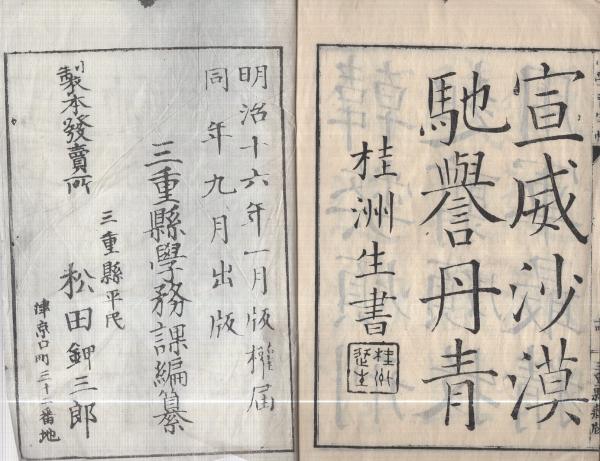 宣威沙漠
馳譽丹青
桂洲生書
明治十六年一月版權届
同年九月出版
三重縣學務課編纂
製本發賣所
三重縣平民
松田鉀三郎
津京口町三十二番地